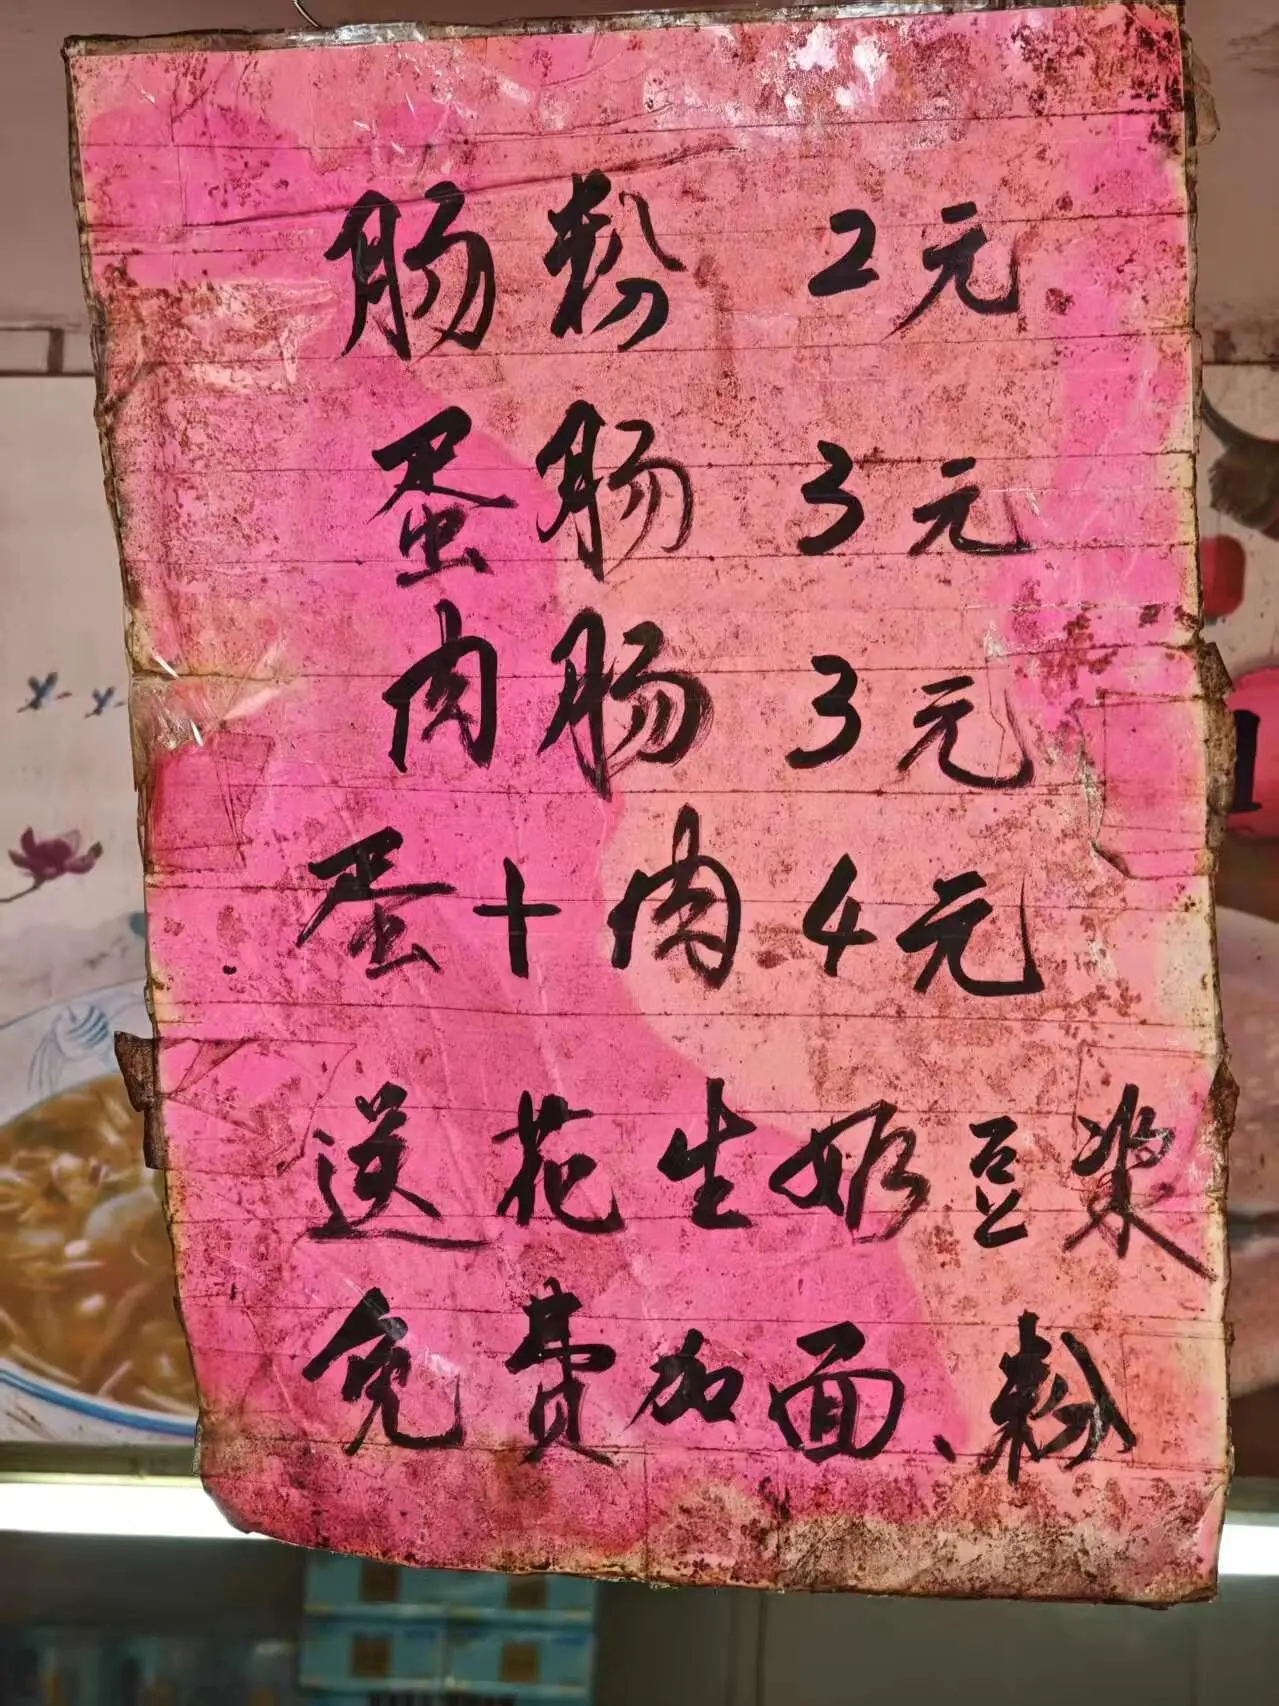 肠粉 2元
蛋肠 3元
肉肠 3元
蛋+肉 4元
送花生奶豆浆
免费加面、粉
1